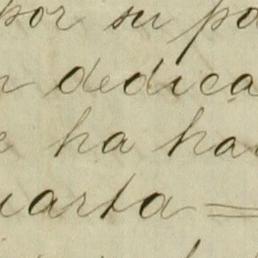 por su pa
n dedica
e ha ha
uarta =